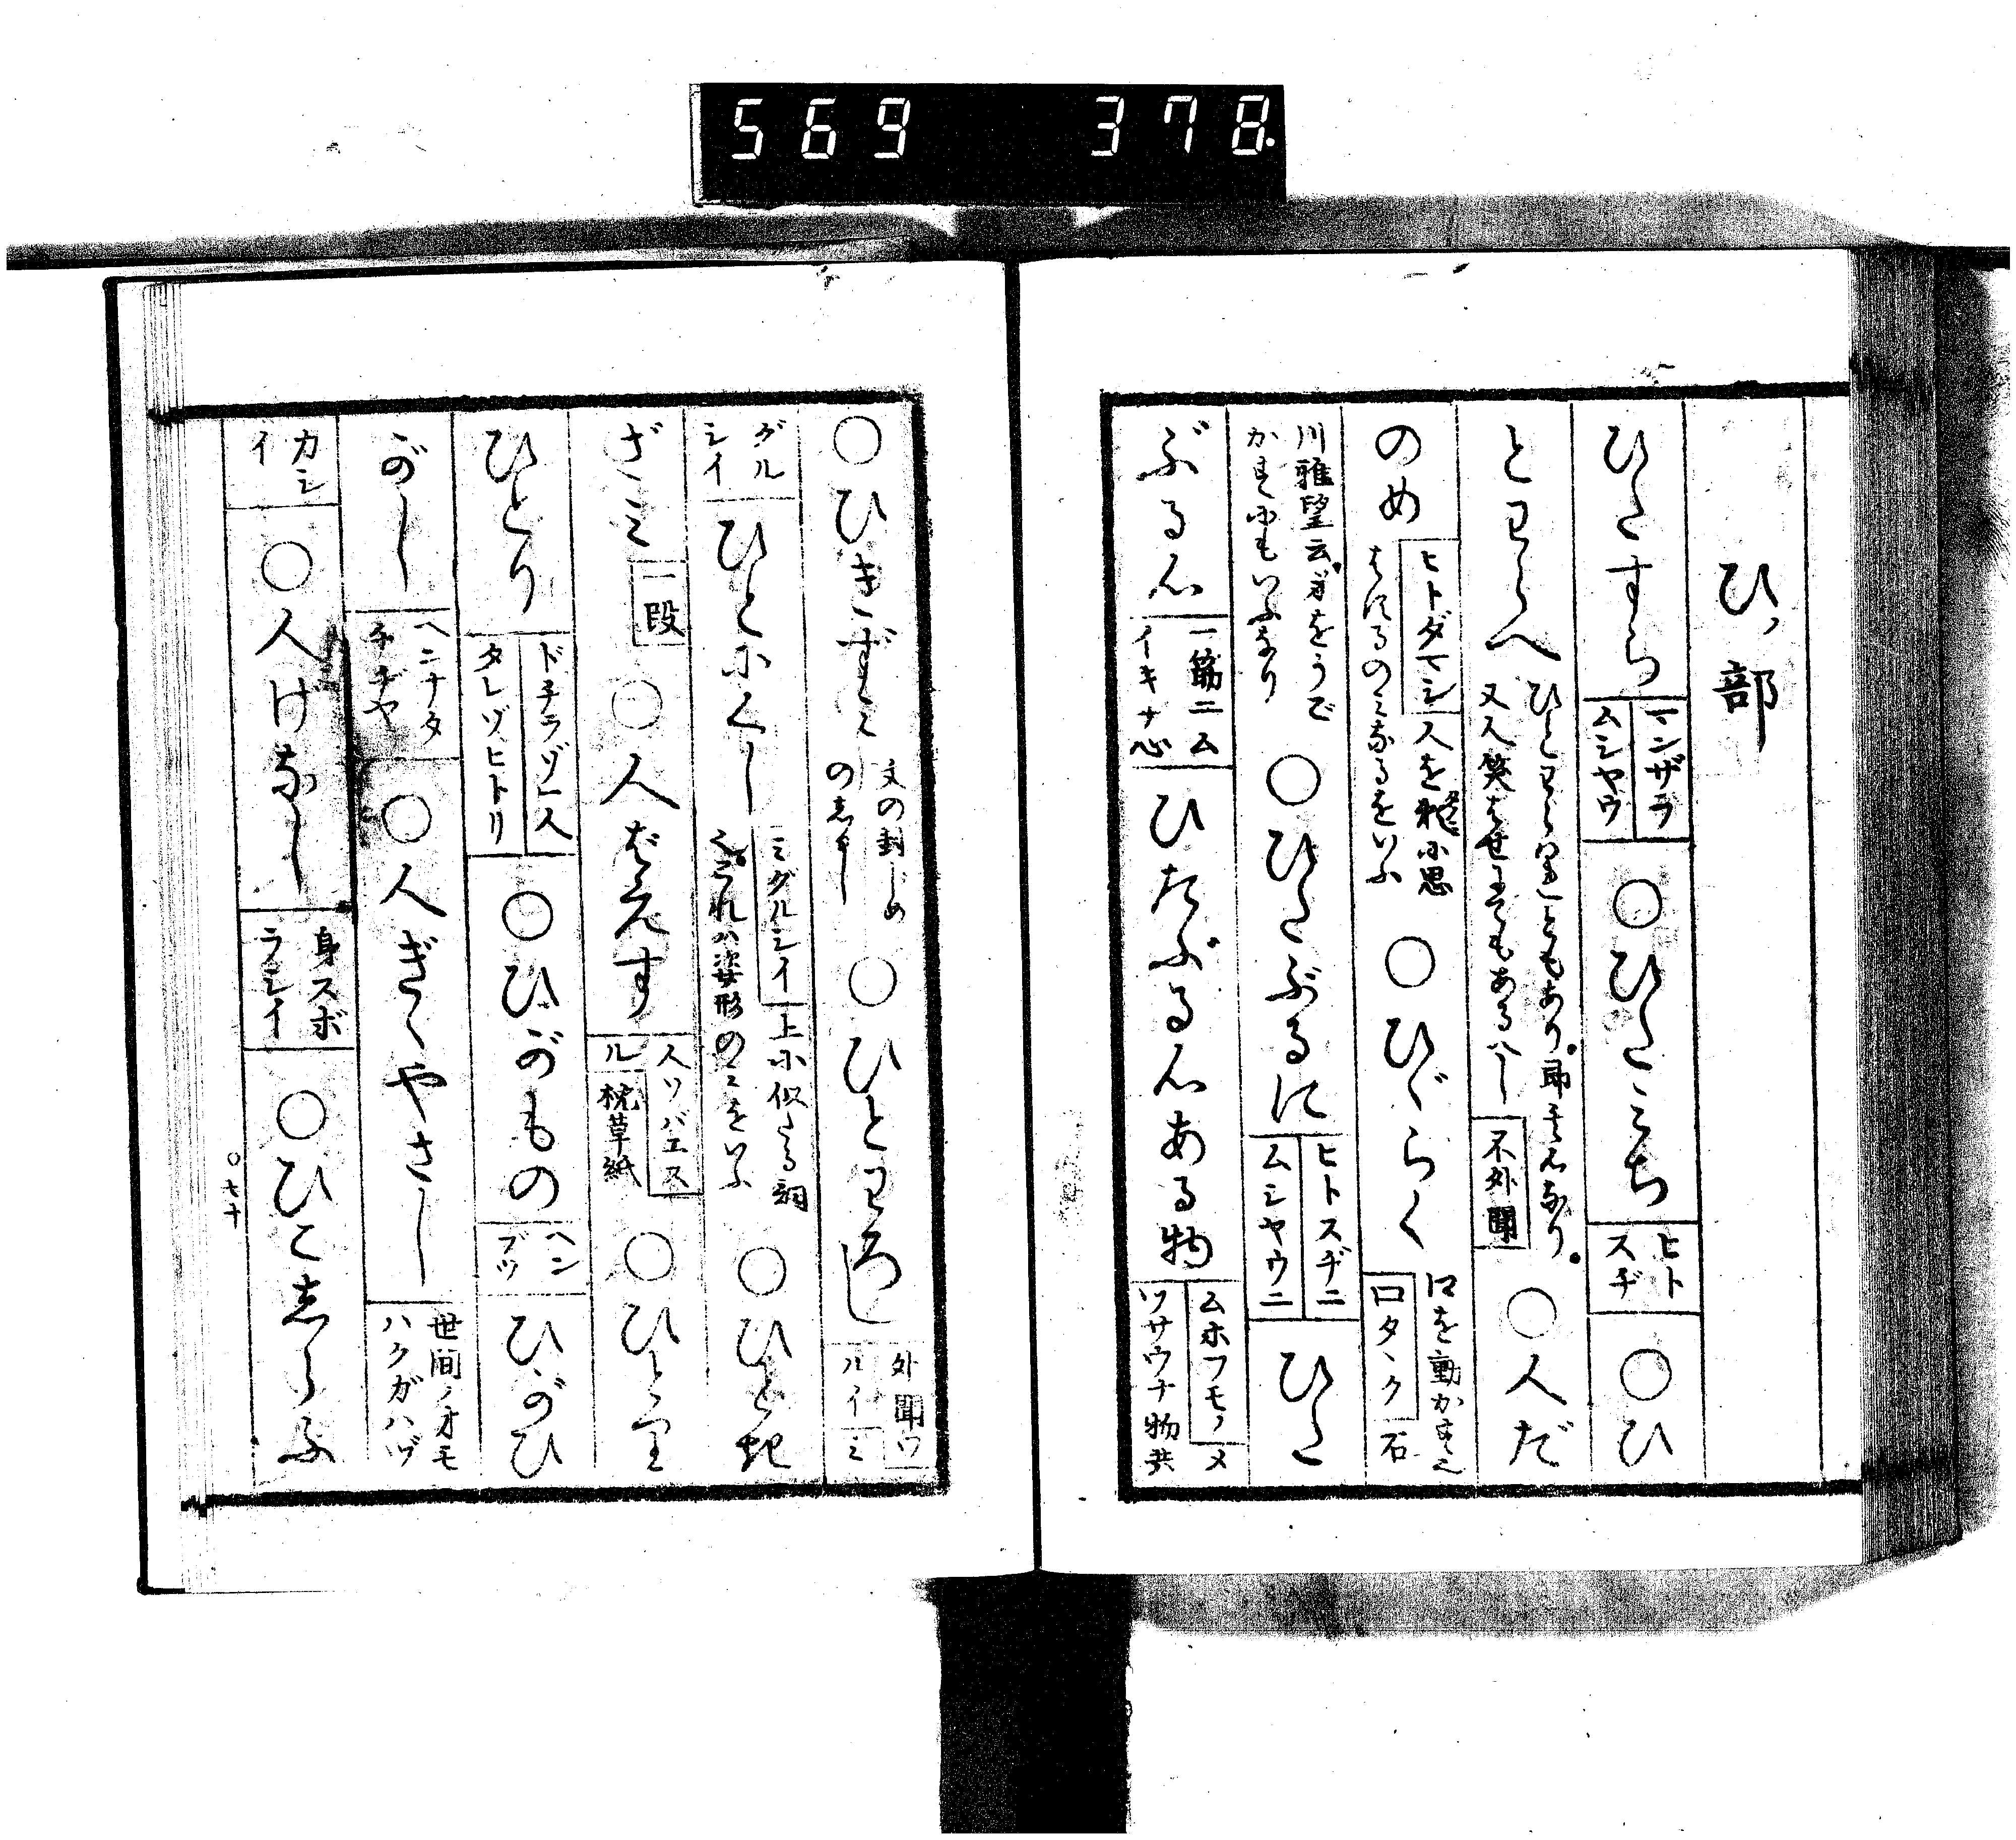 569 378.
ひノ部
ひたすら マンザラ ムシヤウ ○ひたみち ヒトスヂ ○ひ
とわらへ ひとわらはれともあり。即その心なり。又人笑はせにてもあるへし 不外聞 ○人だ
のめ ヒトダマシ 人を 小思はするのみなるをいふ ○ひゞらく 口を動かす也 口タヽク 石
川雅望云。身をうごかすにもいふなり ○ひたぶるに ヒトスヂニ ムシヤウニ ひた
ぶる心 一筋ニムイキナ心 ひたぶる心ある物 ムホフモノ ヌ ソサウナ物共
○ひきずみ 文の封じめの志るし ○ひとわろし 外聞ワルイ ミ
グルシイ ひとにくし ミグルシイ 上に似たる詞 これハ姿形のみをいふ ○ひとき
ざみ 一段 ○人ばえす 人ソバエスル 枕草紙 ○ひとゝり
ひとり ドチラゾ一人 タレゾヒトリ ○ひがもの ヘンブツ ひがひ
がし ヘニナタチヂヤ ○人ぎゝやさし 世間ノオモハクガハヅ
カシイ ○人けなし 身スボラシイ ○ひこしらふ
○七十